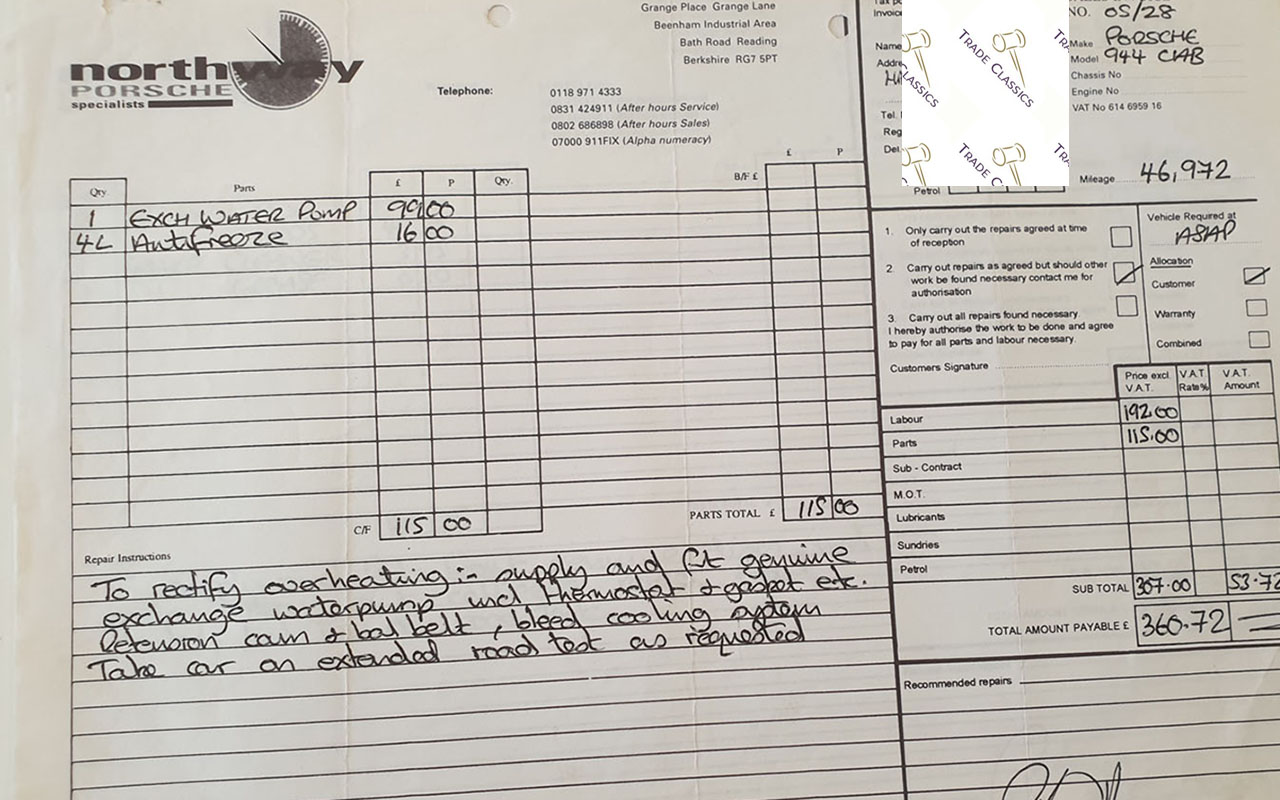 northway
PORSCHE
specialists
Grange Place Grange Lane
Beenham Industrial Area
Bath Road Reading
Berkshire RG7 5PT
Telephone:
0118 971 4333
0831 424911 (After hours Service)
0802 686898 (After hours Sales)
07000 911FIX (Alpha numeracy)
Invoice
Name
Addre
Tel.
Reg
Del
Petrol
TRADE CLASSICS
TRADE CLASSICS
TRADE C
NO. 05/28
Make PORSCHE
Model 944 CAB
Chassis No
Engine No
VAT No 614 6959 16
Mileage 46,972
Qty Parts £ P Qty. B/F £ £ P
1 EXCH WATER PUMP 99 00
4L Antifreeze 16 00
C/F 115 00
PARTS TOTAL £ 115 00
1. Only carry out the repairs agreed at time
of reception
2. Carry out repairs as agreed but should other
work be found necessary contact me for
authorisation
3. Carry out all repairs found necessary.
I hereby authorise the work to be done and agree
to pay for all parts and labour necessary.
Customers Signature
Vehicle Required at
ASAP
Allocation
Customer
Warranty
Combined
Price excl. V.A.T. V.A.T. Rate% V.A.T. Amount
Labour 192.00
Parts 115.00
Sub - Contract
M.O.T.
Lubricants
Sundries
Petrol
SUB TOTAL 307.00 53.72
TOTAL AMOUNT PAYABLE £ 360.72
Repair Instructions
To rectify overheating :- supply and fit genuine
exchange waterpump incl thermostat & gasket etc.
Retension cam & bal belt, bleed cooling system
Take car on extended road test as requested
Recommended repairs